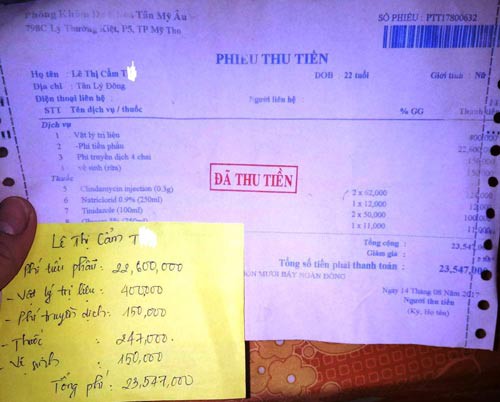 Phòng Khám Đa Khoa Tân Mỹ Âu
798C Lý Thường Kiệt, P5, TP Mỹ Tho
SỐ PHIẾU : PTT17800632
PHIẾU THU TIỀN
Họ tên : Lê Thị Cẩm T
DOB : 22 tuổi
Giới tính : Nữ
Địa chỉ : Tân Lý Đông
Điện thoại liên hệ :
Người liên hệ :
STT Tên dịch vụ / thuốc % GG
Dịch vụ
1 Vật lý trị liệu 400,000
2 -Phí tiền phẫu 22,600,0
3 Phí truyền dịch 4 chai
vệ sinh (rửa)
Thuốc
5 Clindamycin injection (0.3g) 2 x 62,000
6 Natriclorid 0.9% (250ml) 1 x 12,000
7 Tinidazole (100ml) 2 x 50,000
1 x 11,000
ĐÃ THU TIỀN
Tổng cộng : 23,547
Giảm giá :
Tổng số tiền phải thanh toán : 23,547,000
MƯƠI BẢY NGÀN ĐỒNG
Ngày 14 Tháng 08 Năm 2017
Người thu tiền
(Ký, Họ tên)
Lê Thị Cẩm T
Phí tiểu phẫu : 22,600,000
- Vật lý trị liệu : 400,000
- Phí truyền dịch : 150,000
- Thuốc : 247,000
- Vệ sinh : 150,000
Tổng phí : 23,547,000